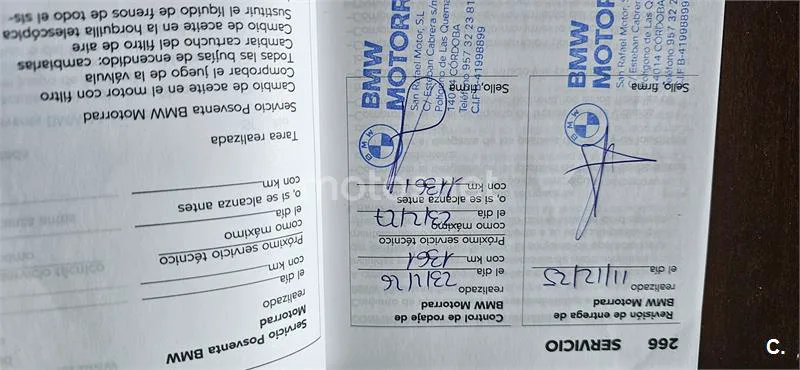 266 SERVICIO
Revisión de entrega de
BMW Motorrad
realizado
el día 11/12/25
Sello, firma
BMW
MOTORR
San Rafael Motor, S.L.
C/ Esteban Cabrera s/n
14014 CÓRDOBA
957 32 23
C.I.F B-41998899
Control de rodaje de
BMW Motorrad
realizado
el día 23/1/26
con km 1361
Próximo servicio técnico
como máximo
el día 23/1/27
o, si se alcanza antes
con km 11361
Sello, firma
BMW
MOTORR
San Rafael Motor, S.L.
C/ Esteban Cabrera s/n
Polígono de Las Quemad
14014 CÓRDOBA
Teléfono 957 32 23 81
C.I.F. B-41998899
Servicio Posventa BMW
Motorrad
realizado
el día
con km
Próximo servicio técnico
como máximo
el día
o, si se alcanza antes
con km
Tarea realizada
Servicio Posventa BMW Motorrad
Cambio de aceite en el motor con filtro
Comprobar el juego de la válvula
Todas las bujías de encendido: cambiarlas
Cambiar cartucho del filtro de aire
Cambio de aceite en la horquilla telescópica
Sustituir el líquido de frenos de todo el sis-
motos.net
C.